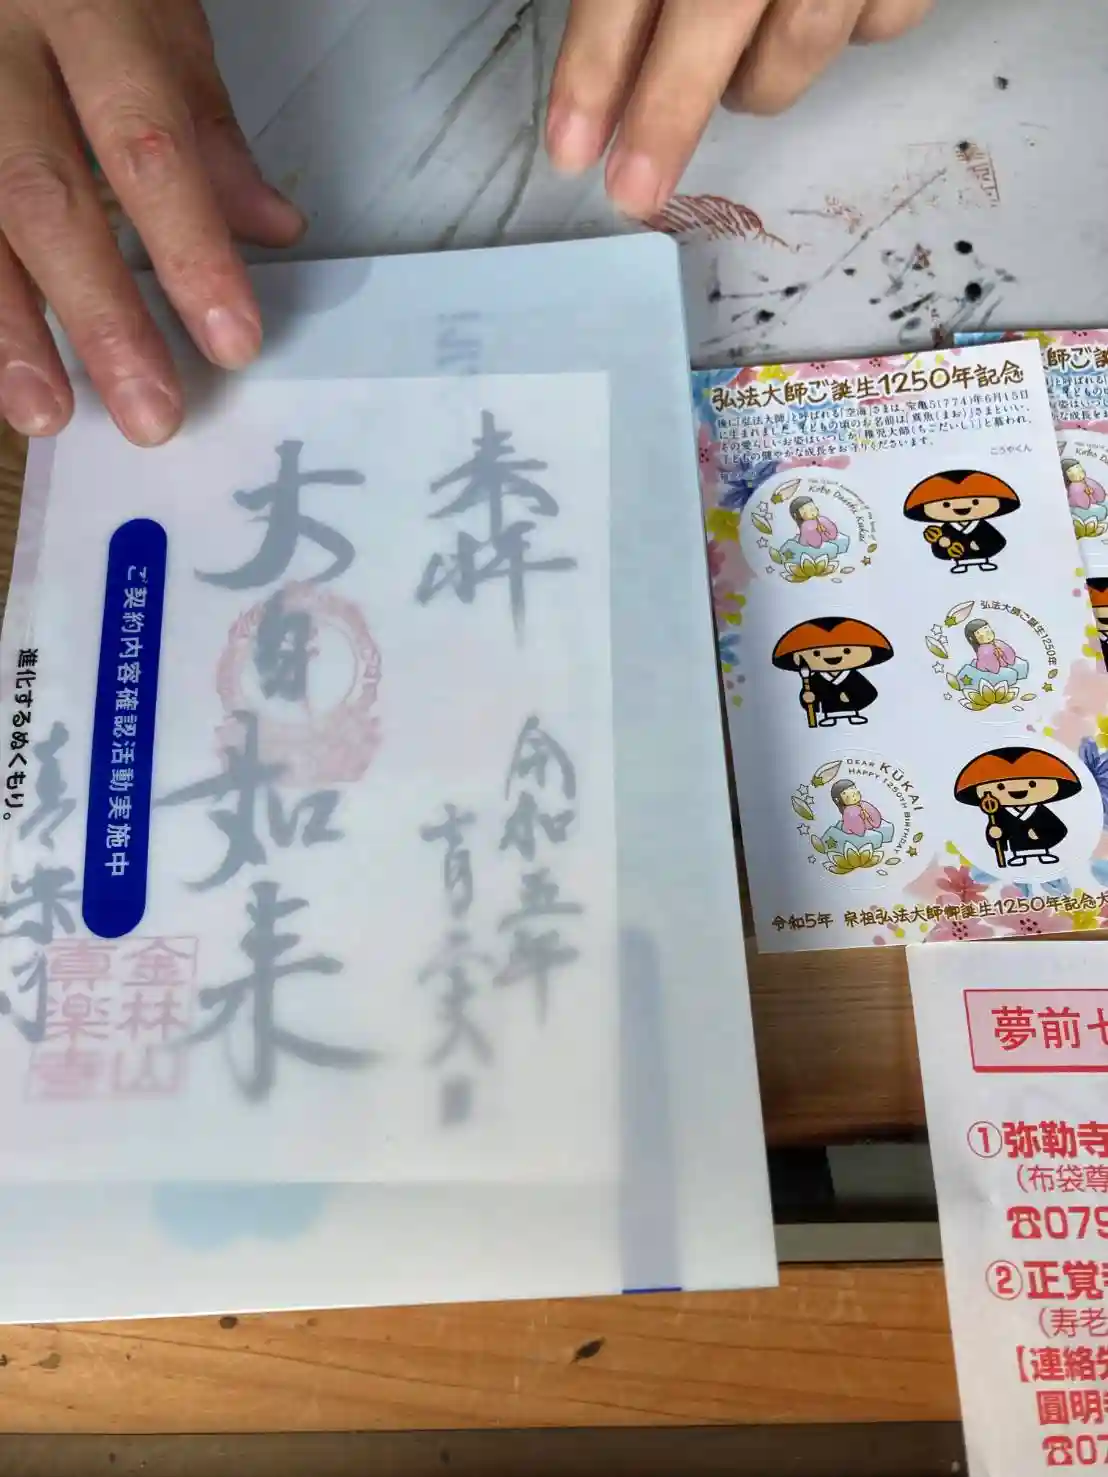 奉拝
令和五年
大日如来
金林山
真楽寺
ご契約内容確認活動実施中
進化するぬくもり。
弘法大師ご誕生1250年記念
後に「弘法大師」と呼ばれる「空海」さまは、宝亀5(774)年6月15日
に生まれました。子どもの頃のお名前は「真魚(まお)」さまといい、
その愛らしいお姿はいつしか「稚児大師(ちごだいし)」と慕われ、
子どもの健やかな成長をお守りくださいます。
こうやくん
Kobo Daishi Kukai
弘法大師ご誕生1250年
DEAR KŪKAI
HAPPY 1250TH BIRTHDAY
令和5年 宗祖弘法大師御誕生1250年記念大
師ご誕
夢前七
①弥勒寺
(布袋尊
☎079
②正覚寺
(寿老
【連絡先
圓明寺
☎07